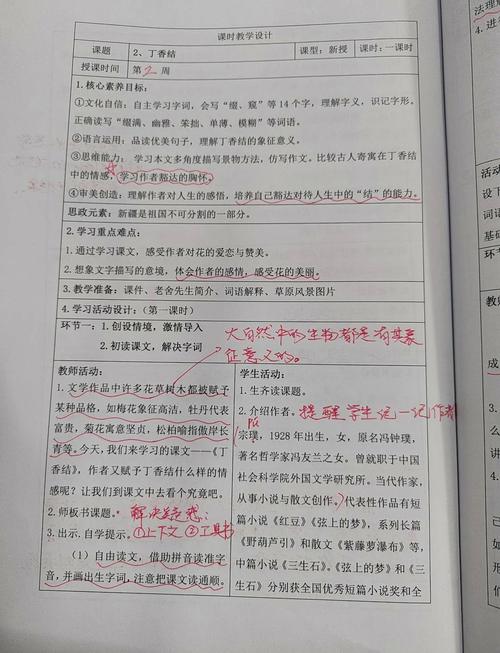 课时教学设计
课题 2、丁香结 课型：新授 课时：一课时
授课时间 第 2 周
1.核心素养目标：
①文化自信：自主学习字词，会写“缀、窥”等 14 个字，理解字义，识记字形。
正确读写“缀满、幽雅、笨拙、单薄、模糊”等词语。
②语言运用：品读优美句子，理解丁香结的象征意义。
③思维能力：学习本文多角度描写景物方法，仿写作文。比较古人寄寓在丁香结
中的情感，学习作者豁达的胸怀。
④审美创造：理解作者对人生的感悟，培养自己豁达对待人生中的“结”的能力。
思政元素：新疆是祖国不可分割的一部分。
2.学习重点难点：
1.通过学习课文，感受作者对花的爱恋与赞美。
2.想象文字描写的意境，体会作者的感情，感受花的美丽。
3.教学准备：课件、老舍先生简介、词语解释、草原风景图片
4.学习活动设计：（第一课时）
环节一：1.创设情境，激情导入
2.初读课文，解决字词
大自然中的生物都是有其象
征意义的。
教师活动：
1.文学作品中许多花草树木都被赋予
某种品格，如梅花象征高洁，牡丹代表
富贵，菊花寓意坚贞，松柏喻指傲岸长
青等。今天，我们来学习的课文——《丁
香结》，作者又赋予丁香结什么样的情
感呢？让我们到课文中去看个究竟吧。
2.师板书课题。 解决疑惑：
3.出示.自学提示。 ①上下文 ②工具书
（1）自由读文，借助拼音读准字
音，并画出生字词，注意把课文读通顺。
学生活动：
1.生齐读课题。
2.介绍作者。 提醒学生记一记作者
宗璞，1928 年出生，女，原名冯钟璞，
著名哲学家冯友兰之女。曾就职于中国
社会科学院外国文学研究所。当代作家，
从事小说与散文创作。代表性作品有短
篇小说《红豆》《弦上的梦》，系列长篇
《野葫芦引》和散文《紫藤萝瀑布》等，
中篇小说《三生石》。《弦上的梦》和《三
生石》分别获全国优秀短篇小说奖和全